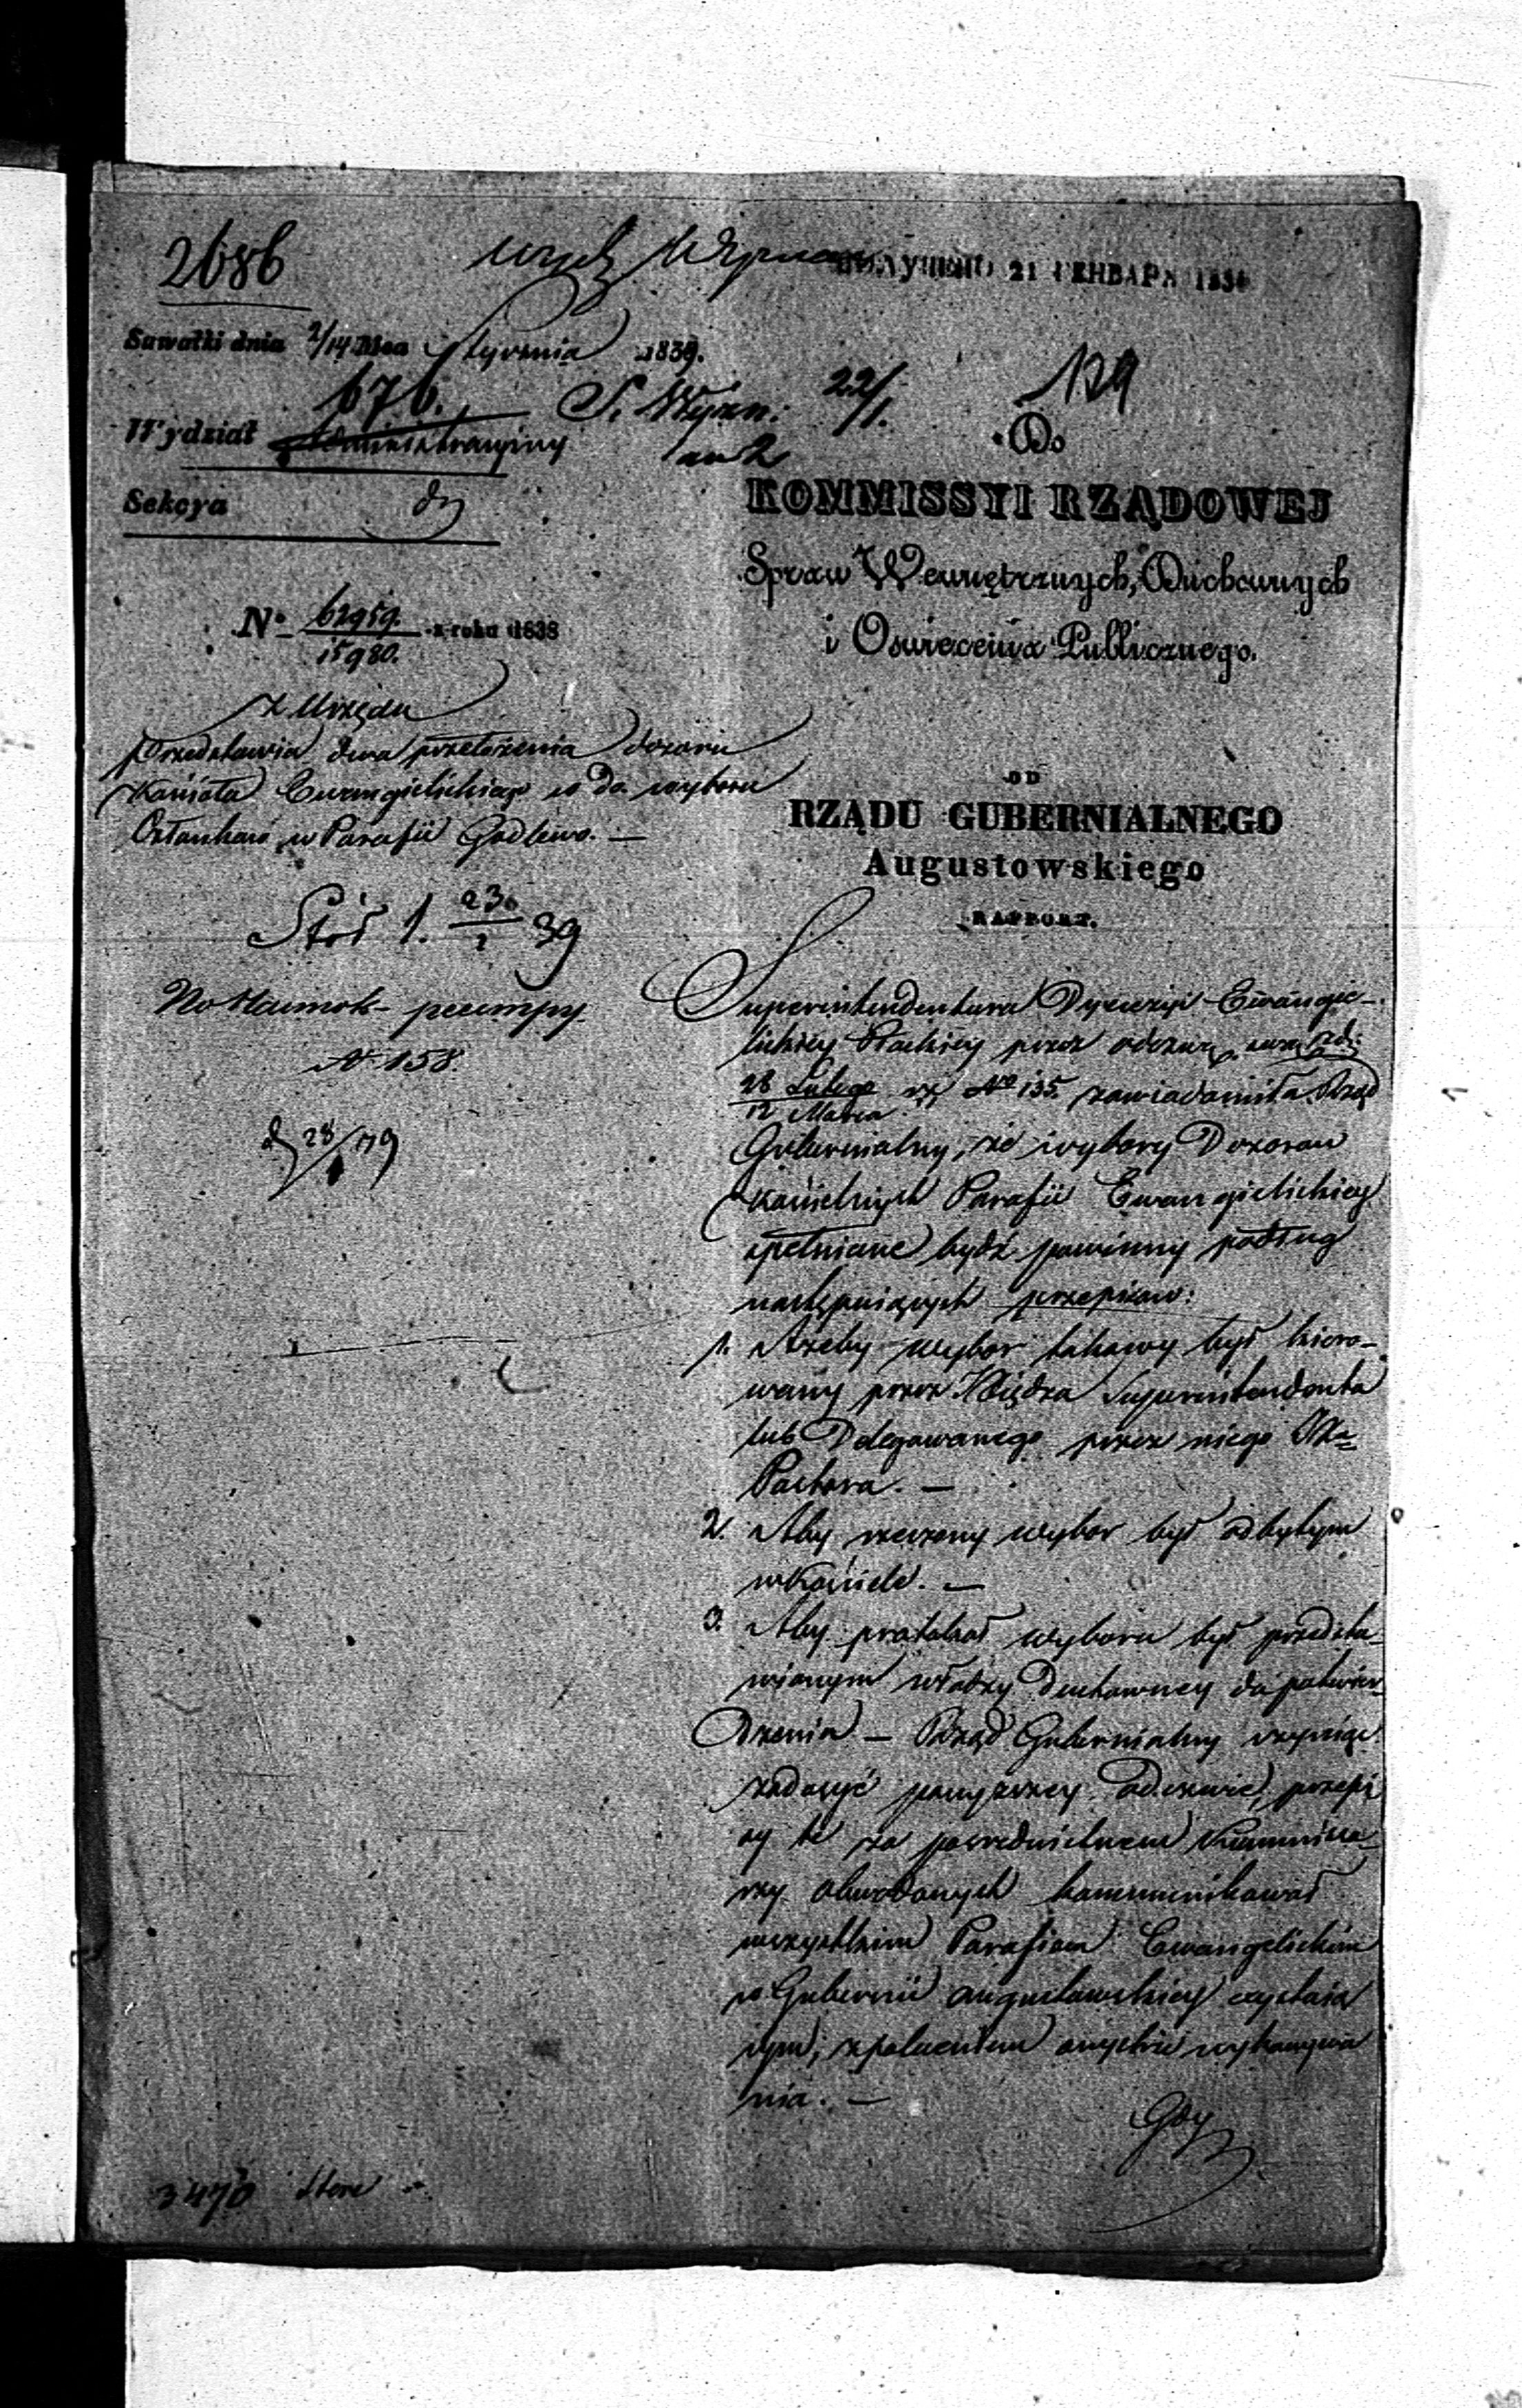 2686
ПОЛУЧЕНО 21 ГЕНВАРЯ 183
Suwałki dnia 2/14 Mca Stycznia 1839.
676.
S. Wyzn. 22/1.
129
Wydział Administracyiny
Sekcya
Do
KOMMISSYI RZĄDOWEJ
Spraw Wewnętrznych, Duchownych
i Oswiecenia Publicznego.
N° 62959. z roku 1838
15980.
Z Urzędu
Przedstawia dwa przełożenia dozoru
Kościoła Ewangielickiego co do wyboru
Członków w Parafii Godlewo. —
OD
RZĄDU GUBERNIALNEGO
Augustowskiego
RAPPORT.
1. 23 39
N 158.
Superintendentura Dyecezyi Ewangie-
lickiey Płockiey przez odezwę
28 Lutego
12 Marca
N° 135. zawiadomiła Rząd
Gubernialny, że wybory Dozorow
Kościelnych Parafii Ewangielickiey
spełniane bydź powinny podług
następuiących przepisow:
1. Ażeby wybor takowy był kiero-
wany przez Xiędza Superintendenta
lub Delegowanego przez niego Xa
Pastora. —
2. Aby rzeczony wybor był odbytym
w Kościele. —
3. Aby protokoł wyboru był przedsta-
wionym władzy Duchowney do potwier-
dzenia — Rząd Gubernialny czyniąc
zadosyć powyzszey odezwie, przepi
sy te za posrednictwem Kommissa-
rzy obwodowych kommunikował
wszystkim Parafiom Ewangelickim
w Gubernii Augustowskiey
z poleceniem wykonywa
nia. —
Gdy
3470